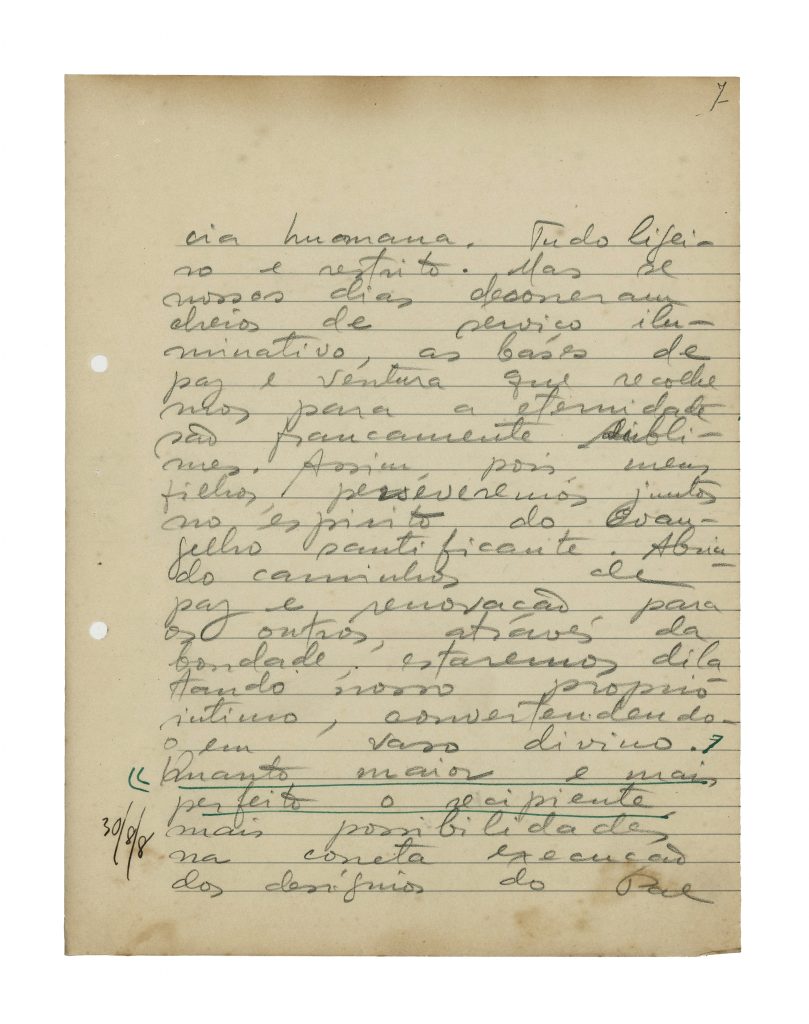 7-
cia humana. Tudo ligei-
ro e restrito. Mas se
nossos dias decorreram
cheios de serviço ilu-
minativo, as bases de
paz e ventura que recolhe
mos para a eternidade
são francamente subli-
mes. Assim, pois meus
filhos, perseveremos juntos
no espirito do Evan-
gelho santificante. Abrin
do caminhos de
paz e renovação para
os outros, através da
bondade, estaremos dila
tando nosso próprio
intimo, convertendendo-
o em vaso divino.
« Quanto maior e mais
perfeito o recipiente,
30/8/8
mais possibilidades
na correta execução
dos desígnios do Pae